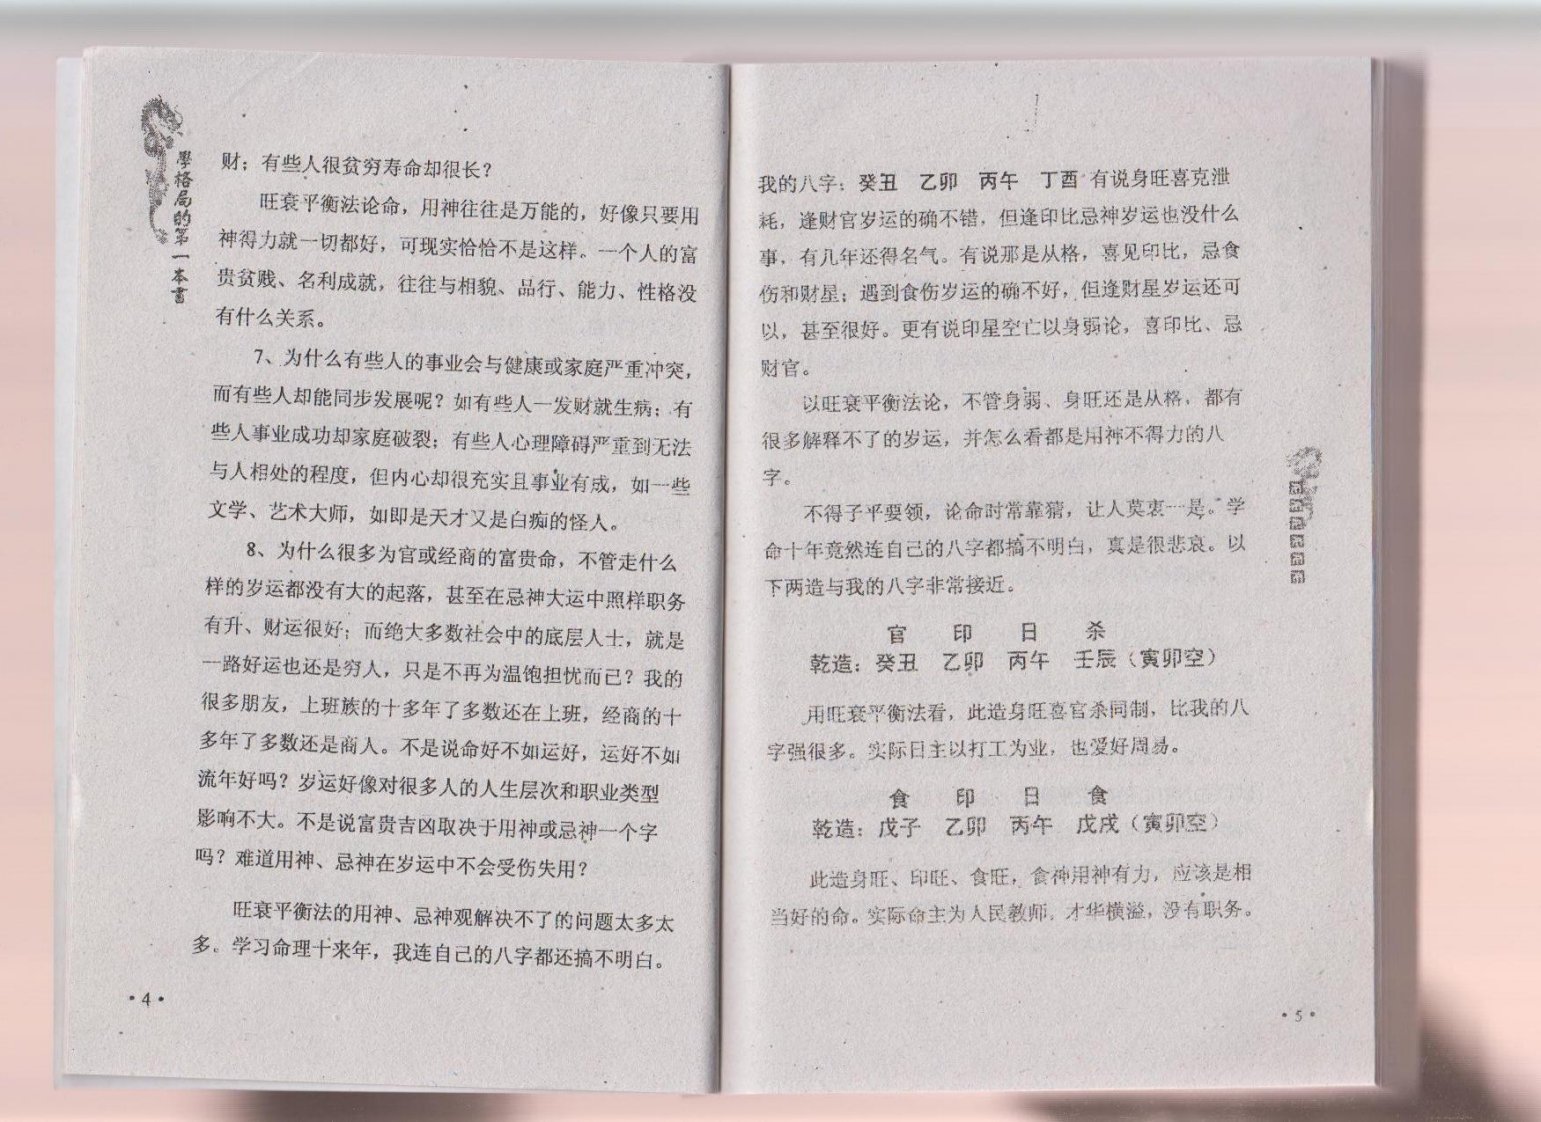 學格局的第一本書
财；有些人很贫穷寿命却很长？
旺衰平衡法论命，用神往往是万能的，好像只要用
神得力就一切都好，可现实恰恰不是这样。一个人的富
贵贫贱、名利成就，往往与相貌、品行、能力、性格没
有什么关系。
7、为什么有些人的事业会与健康或家庭严重冲突，
而有些人却能同步发展呢？如有些人一发财就生病；有
些人事业成功却家庭破裂；有些人心理障碍严重到无法
与人相处的程度，但内心却很充实且事业有成，如一些
文学、艺术大师，如即是天才又是白痴的怪人。
8、为什么很多为官或经商的富贵命，不管走什么
样的岁运都没有大的起落，甚至在忌神大运中照样职务
有升、财运很好；而绝大多数社会中的底层人士，就是
一路好运也还是穷人，只是不再为温饱担忧而已？我的
很多朋友，上班族的十多年了多数还在上班，经商的十
多年了多数还是商人。不是说命好不如运好，运好不如
流年好吗？岁运好像对很多人的人生层次和职业类型
影响不大。不是说富贵吉凶取决于用神或忌神一个字
吗？难道用神、忌神在岁运中不会受伤失用？
旺衰平衡法的用神、忌神观解决不了的问题太多太
多。学习命理十来年，我连自己的八字都还搞不明白。
·4·
我的八字：癸丑 乙卯 丙午 丁酉 有说身旺喜克泄
耗，逢财官岁运的确不错，但逢印比忌神岁运也没什么
事，有几年还得名气。有说那是从格，喜见印比，忌食
伤和财星；遇到食伤岁运的确不好，但逢财星岁运还可
以，甚至很好。更有说印星空亡以身弱论，喜印比、忌
财官。
以旺衰平衡法论，不管身弱、身旺还是从格，都有
很多解释不了的岁运，并怎么看都是用神不得力的八
字。
不得子平要领，论命时常靠猜，让人莫衷一是。学
命十年竟然连自己的八字都搞不明白，真是很悲哀。以
下两造与我的八字非常接近。
官 印 日 杀
乾造：癸丑 乙卯 丙午 壬辰（寅卯空）
用旺衰平衡法看，此造身旺喜官杀同制，比我的八
字强很多。实际日主以打工为业，也爱好周易。
食 印 日 食
乾造：戊子 乙卯 丙午 戊戌（寅卯空）
此造身旺、印旺、食旺，食神用神有力，应该是相
当好的命。实际命主为人民教师，才华横溢，没有职务。
·5·